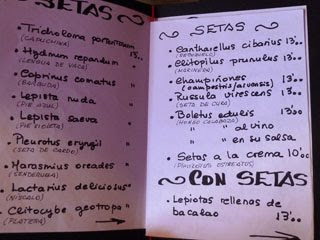 SETAS
• Tricholoma portentosum
(CAPUCHINA)
• Hydnum repandum
(LENGUA DE VACA)
• Coprinus comatus "
(BARBUDA)
• Lepista nuda "
(PIE AZUL)
• Lepista saeva "
(PIE VIOLETA)
• Pleurotus eryngii "
(SETA DE CARDO)
• Marasmius oreades "
(SENDERUELA)
• Lactarius deliciosus "
(NISCALO)
• Clitocybe geotropa "
(PLATERA)
SETAS
• Cantharellus cibarius 13'00
(REBOZUELO)
• Clitopilus prunulus 13'00
(MARINERA)
• Champiñones 13'00
(campestris/arvensis)
• Russula virescens 13'00
(SETA DE CURA)
• Boletus edulis 13'00
(HONGO CALABAZA)
" al vino
" en su salsa
• Setas a la crema 10'00
(PLEUROTUS OSTREATUS)
CON SETAS
• Lepiotas rellenos de
bacalao 13'00